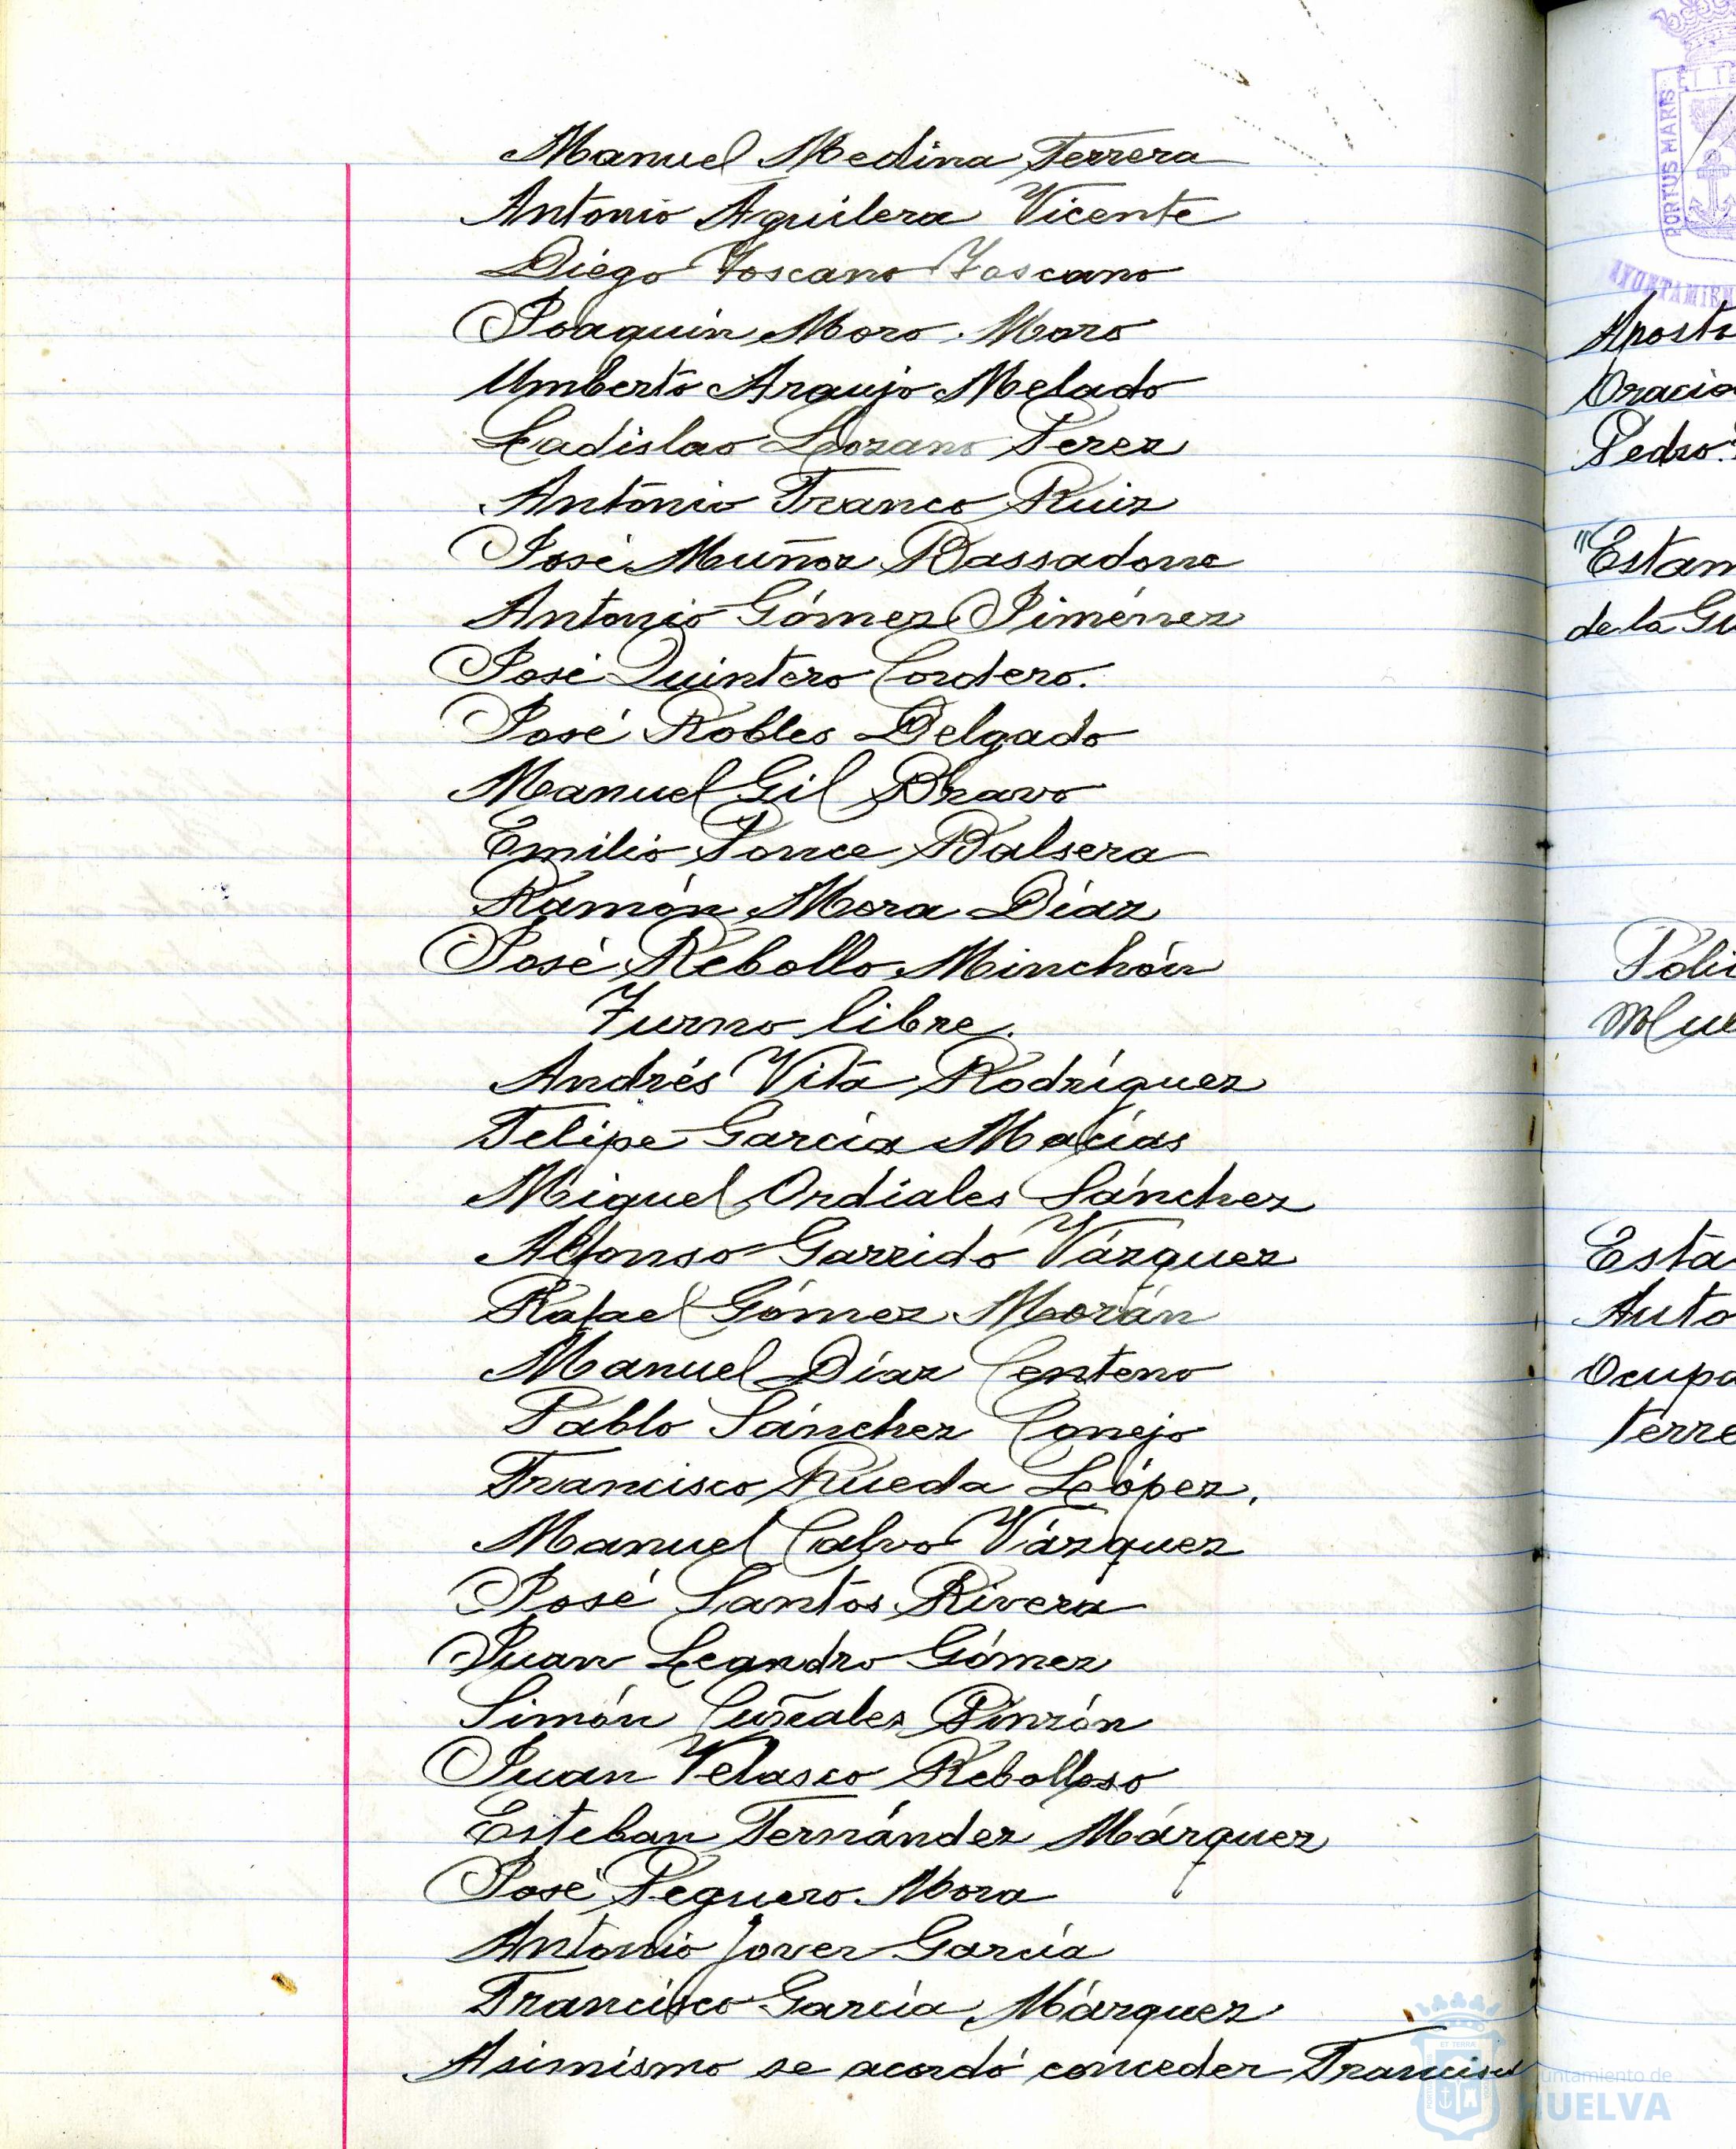 Manuel Medina Ferrera
Antonio Aguilera Vicente
Diego Toscano Toscano
Joaquin Moro Moro
Umberto Araujo Melado
Ladislao Lozano Perez
Antonio Franco Ruiz
José Muñoz Bassadone
Antonio Gómez Jiménez
José Quintero Cordero.
José Robles Delgado
Manuel Gil Bravo
Emilio Ponce Balsera
Ramón Mora Díaz
José Rebollo Minchón
Turno libre.
Andrés Vita Rodríguez
Felipe García Macías
Miguel Ordiales Sánchez
Alfonso Garrido Vázquez
Rafael Gómez Morán
Manuel Díaz Centeno
Pablo Sánchez Conejo
Francisco Rueda López.
Manuel Calvo Vázquez
José Santos Rivera
Juan Leandro Gómez
Simón Pinzón
Juan Velasco Rebolloso
Esteban Fernández Márquez
José Peguero Mora
Antonio Jover García
Francisco García Márquez
Asimismo se acordó conceder Francisco
PORTUS MARIS
AYUNTAMIEN
Aposto
Oracio
Pedro
"Estam
de la Gu
Poli
Mue
Esta
Auto
Ocupa
terre
Ayuntamiento de
HUELVA